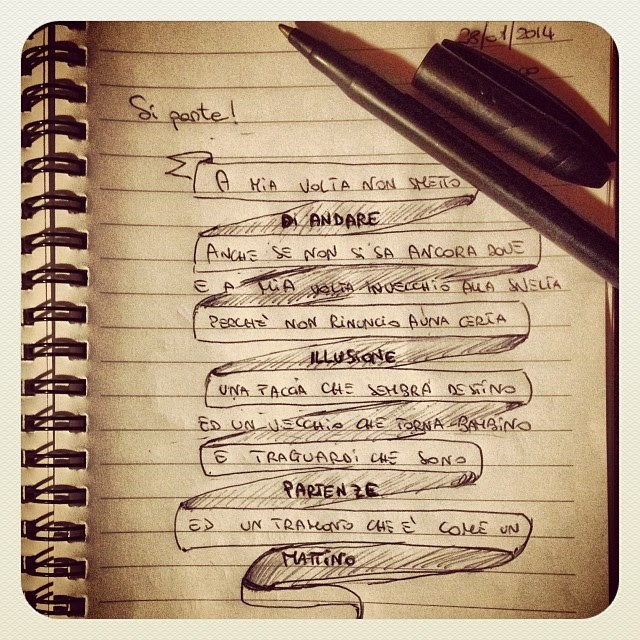 28/01/2014
Si parte!
A MIA VOLTA NON SMETTO
DI ANDARE
ANCHE SE NON SI SA ANCORA DOVE
E A MIA VOLTA INVECCHIO ALLA SVELTA
PERCHE' NON RINUNCIO A UNA CERTA
ILLUSIONE
UNA FACCIA CHE SEMBRA DESTINO
ED UN VECCHIO CHE TORNA BAMBINO
E TRAGUARDI CHE SONO
PARTENZE
ED UN TRAMONTO CHE E' COME UN
MATTINO